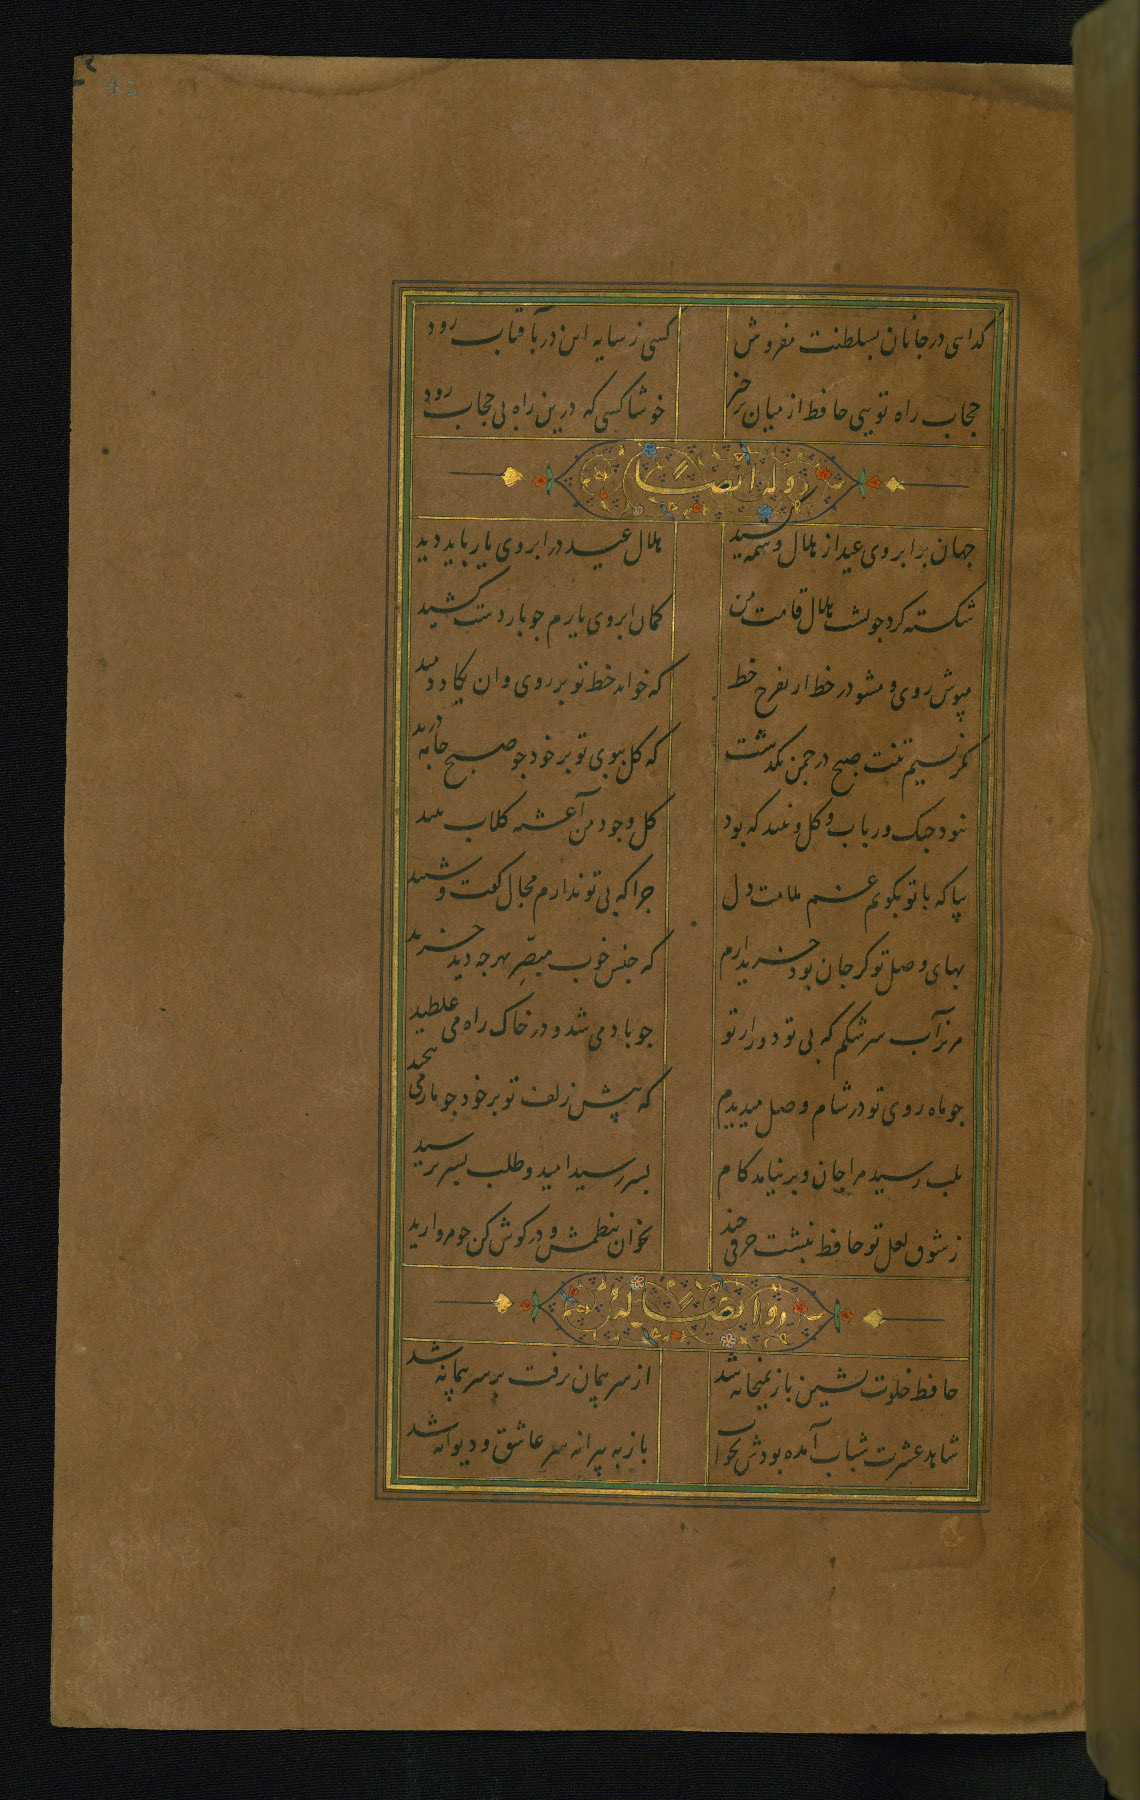 42
کدایی در جانان بسلطنت مفروش
کسی ز سایه این در بآفتاب رود
حجاب راه تویی حافظ از میان برخیز
خوشا کسی که درین راه بی حجاب رود
وله ایضا
جهان بر ابروی عید از هلال وسمه کشید
هلال عید در ابروی یار باید دید
شکسته کرد جو پشت هلال قامت من
کمان ابروی یارم جو بار وسمه کشید
مپوش روی و مشو در خط از تفرج خط
که خواند خط تو بر روی وان یکاد دمید
مکر نسیم تنت صبح در جمن بکدشت
که کل ببوی تو بر خود جو صبح جامه درید
نبود جنک و رباب و کل و نبید که بود
کل وجود من آغشته کلاب نبید
بیا که با تو بکویم غم ملامت دل
جرا که بی تو ندارم مجال کفت و شنید
بهای وصل تو کر جان بود خریدارم
که جنس خوب مبصر بهر جه دید خرید
مریز آب سرشکم که بی تو دور از تو
جو باد می شد و در خاک راه می غلطید
جو ماه روی تو در شام وصل میدیدم
که پیش زلف تو بر خود جو مار می پیچید
بلب رسید مرا جان و بر نیامد کام
بسر رسید امید و طلب بسر نرسید
ز شوق لعل تو حافظ نبشت حرفی جند
بخوان بنظمش و در کوش کن جو مروارید
وله ایضا
حافظ خلوت نشین باز بمیخانه شد
از سر پیمان برفت بر سر پیمانه شد
شاهد عشرت شباب آمده بودش بخواب
باز به پیرانه سر عاشق و دیوانه شد